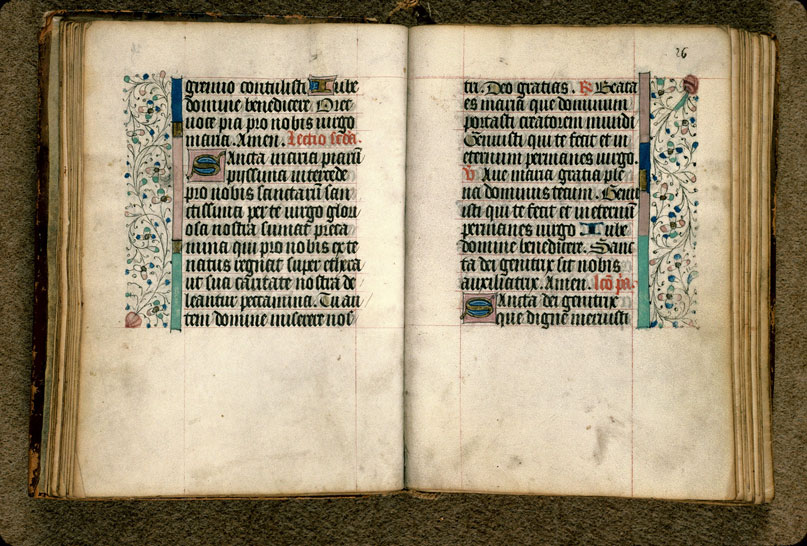 gremio contulisti Iube
domine benedicere Dice
voce pia pro nobis virgo
maria. Amen. Lectio scda.
Sancta maria piarū
piissima intercede
pro nobis sanctarū san
ctissima per te virgo glori
osa nostra sumat preca
mina qui pro nobis ex te
natus regnat super ethera
ut sua caritate nostra de
leantur peccamina. Tu au
tem domine miserere nos
26
tri. Deo gratias. R Beata
es maria que dominum
portasti creatorem mundi
Genuisti qui te fecit et in
eternum permanes virgo.
V Aue maria gratia ple
na dominus tecum. Genu
isti qui te fecit et in eternū
permanes virgo Iube
domine benedicere. Sanc
ta dei genitrix sit nobis
auxiliatrix. Amen.
Sancta dei genitrix
que digne meruisti